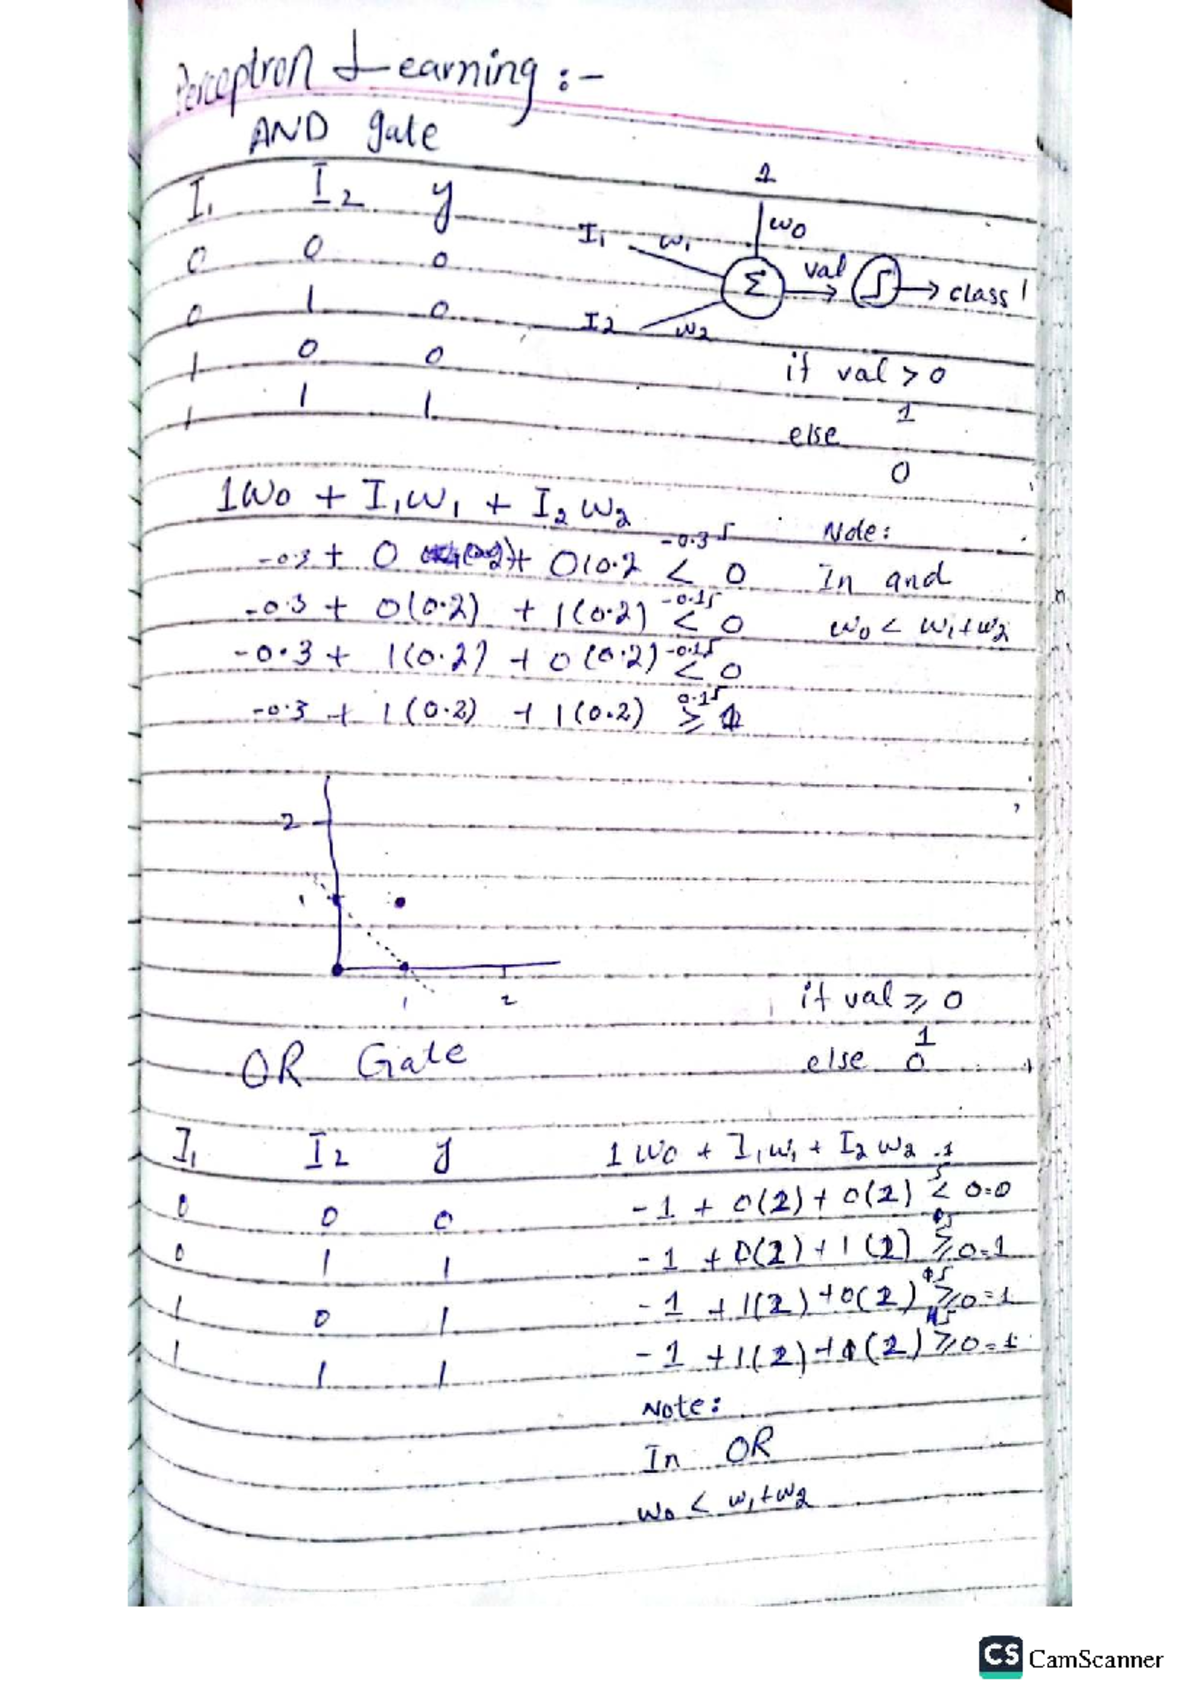 Perceptron Learning :-
AND gate
I₁ I₂ y
0 0 0
0 1 0
1 0 0
1 1 1
1
w0
I₁ w₁
Σ val class 1
I2 w2
if val > 0
1
else
0
1w0 + I₁w₁ + I₂w₂
-0.3 + 0 + 0(0.2 < 0
-0.3 + 0(0.2) + 1(0.2) -0.15 < 0
-0.3 + 1(0.2) + 0(0.2) -0.15 < 0
-0.3 + 1(0.2) + 1(0.2) 0.15 ≥
Note:
In and
w0 < w₁+w₂
2
1
1 2
if val ≥ 0
1
else 0
OR Gate
I₁ I₂ y
0 0 0
0 1 1
1 0 1
1 1 1
1w0 + I₁w₁ + I₂w₂
-1 + 0(2) + 0(2) < 0=0
-1 + 0(2) + 1(2) ≥ 0=1
-1 + 1(2) + 0(2) ≥ 0=1
-1 + 1(2) + 1(2) ≥ 0=1
Note:
In OR
w0 < w₁+w₂
CS CamScanner